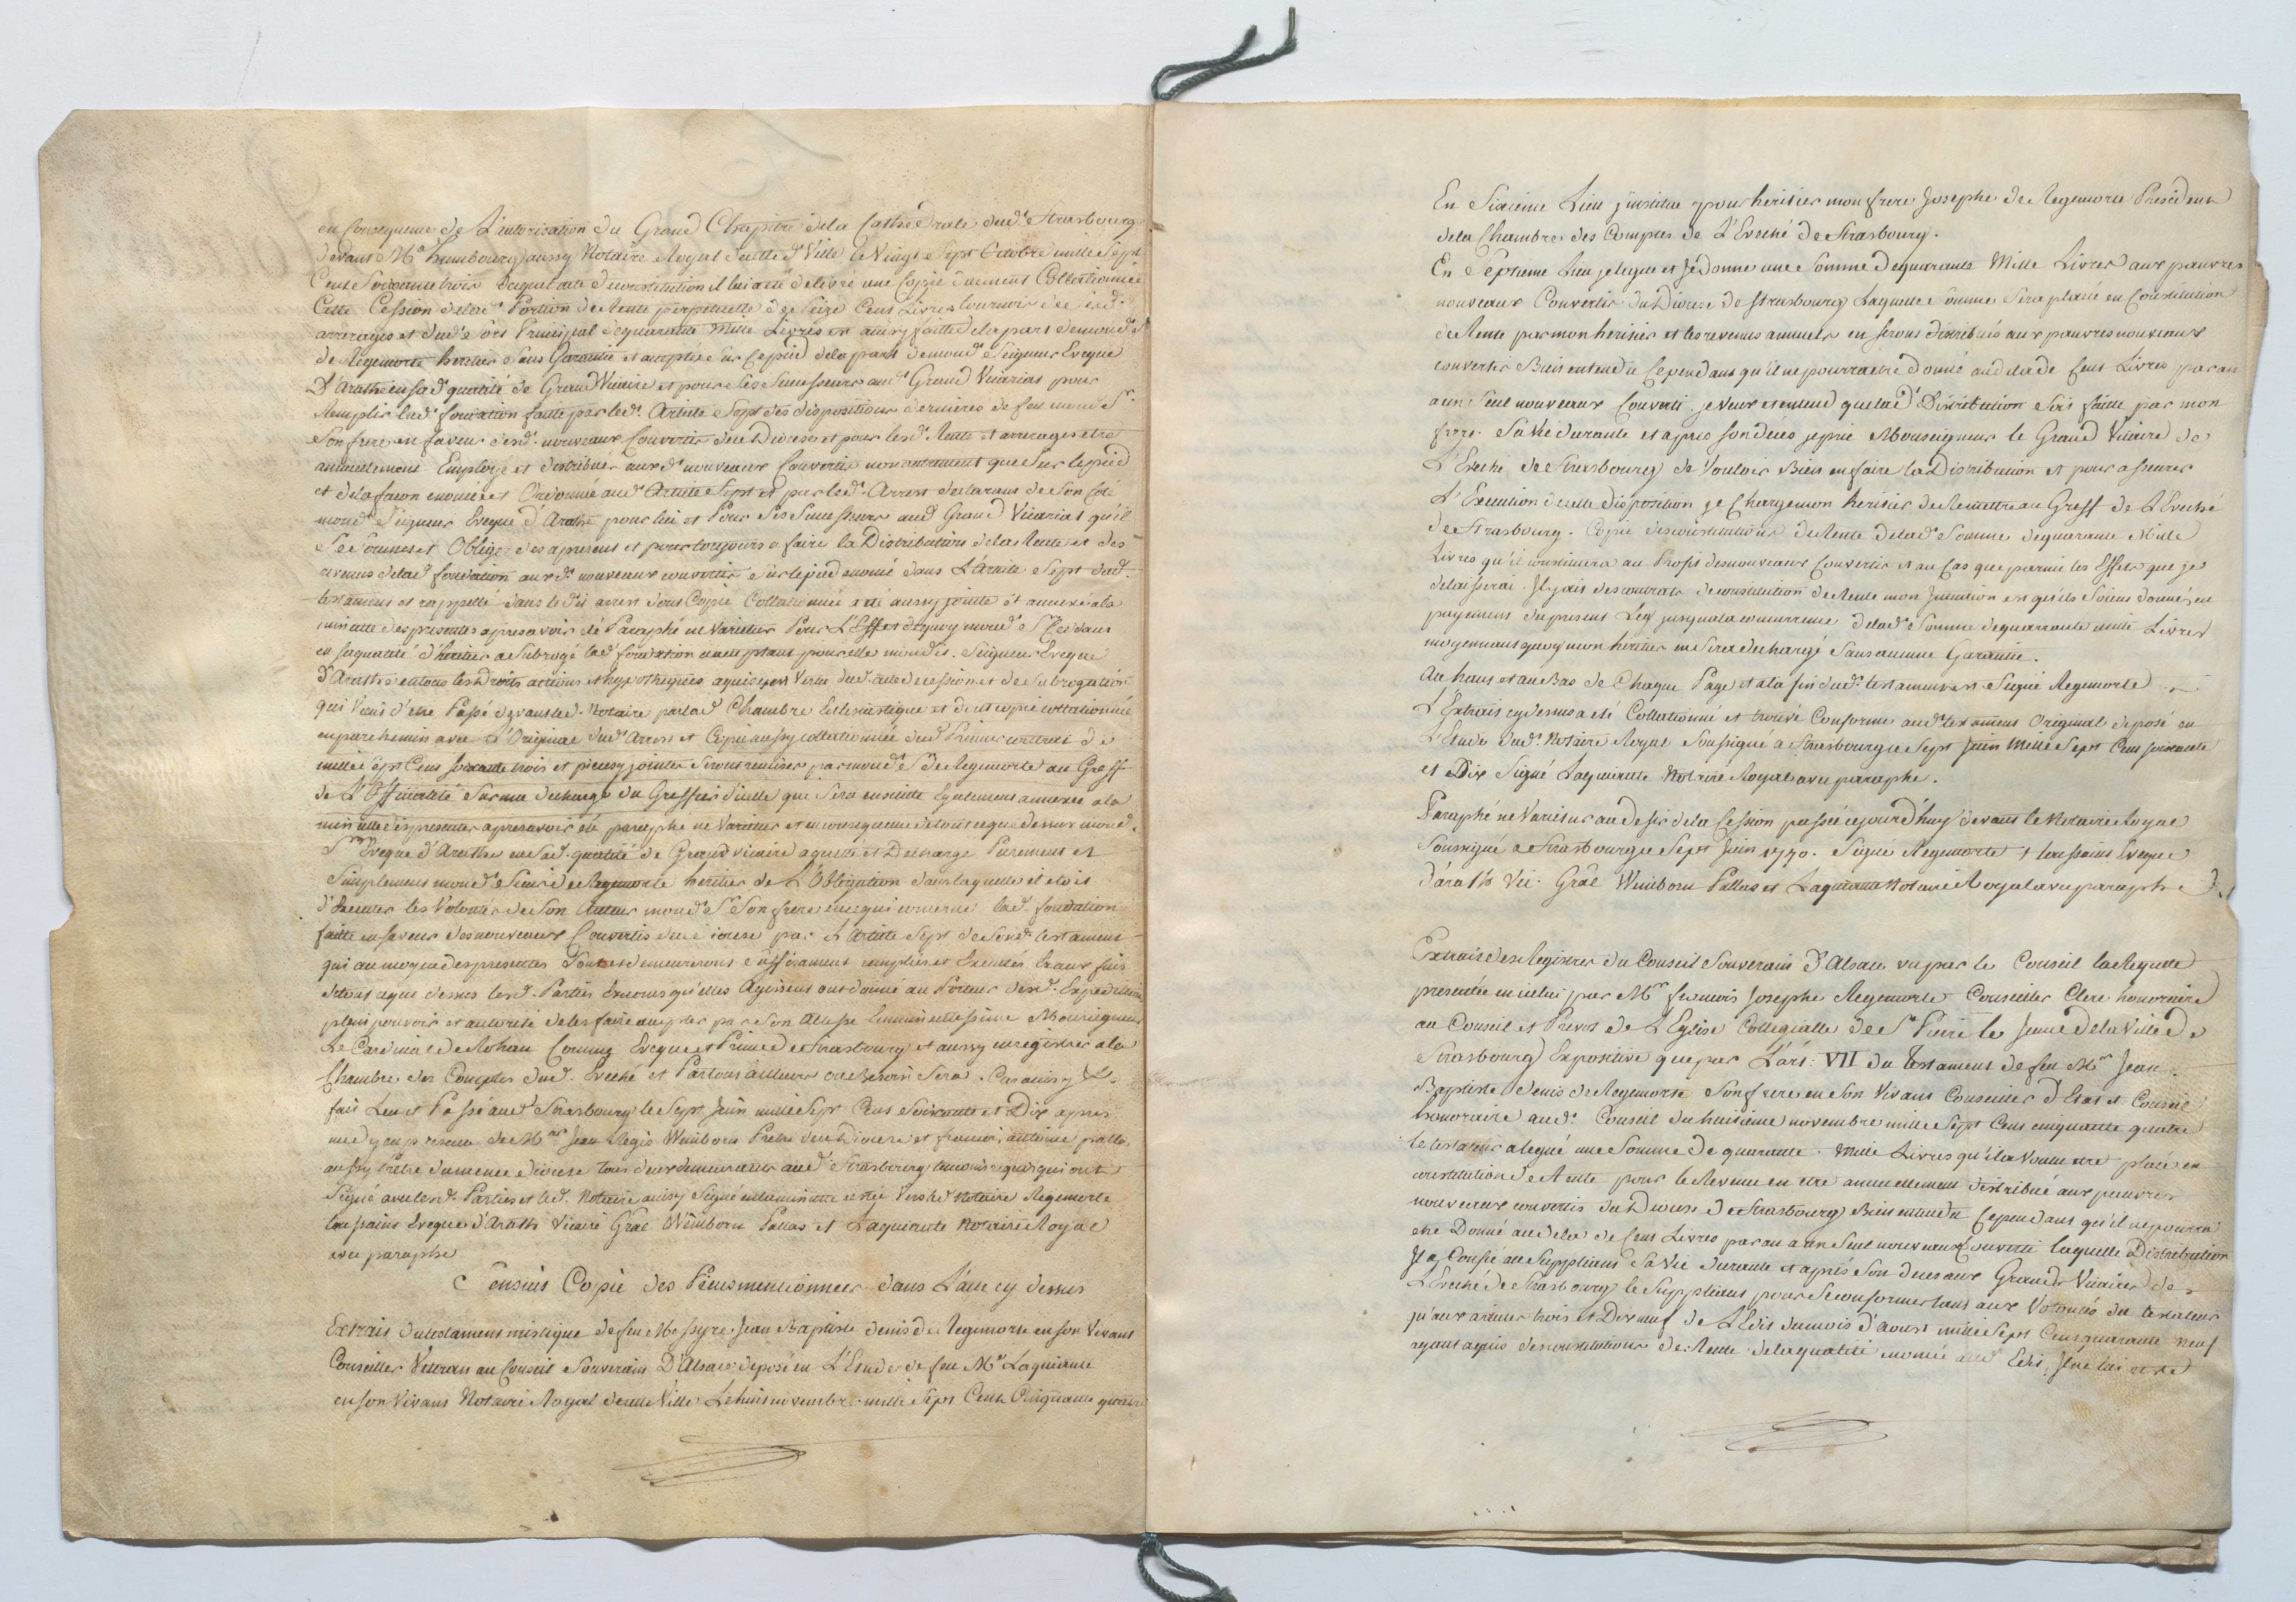 en Consequence de L'autorisation du Grand Chapitre dela Cathedrale dud. Strasbourg
devant Me humbourg aussy Notaire Royal de cette de Ville le Vingt Sept Octobre mille Sept
Cent Soixante trois duquel acte de constitution il lui a été delivré une Copie duement Collationnée
Cette Cession de lad. Portion de Rente perpetuelle de Seize Cent Livres tournois de ses d.
arrerages et dud. sort Principal de quarante Mille Livres est aussy faitte de la part de mond. Sr
de Regemorte heritier Sans Garantie et acceptée Sur ce pied de la part de mond. Seigneur Eveque
D'Arath en sad. qualité de Grand Vicaire et pour Ses Successeurs aud. Grand Vicariat pour
Remplir lad. fondation faitte par led. Article Sept des dispositions dernieres de feu mond. Sr.
Son frere en faveur desd. nouveaux Convertis du Diocese et pour lesd. Rente et arrerages etre
annuelement Employé et distribués auxd. nouveaux Convertis non autrement que Sur le pied
et de la facon enoncées et Ordonnée aud. Article Sept et par led. Arrest declarant de Son Coté
mond. Seigneur Eveque d'Arath pour lui et Pour Ses Successeurs aud. Grand Vicariat qu'il
Se Soumet et Oblige des apresent et pour toujours a faire la Distribution de la Rente et des
revenus de lad. fondation auxd. nouveaux convertis Sur le pied enoncé dans L'Article Sept dud.
testament et rappellé dans led. arrest dont Copie Collationnée a été aussy jointe et annexé a la
minutte des presentes apres avoir été Paraphé ne Varietur Pour L'Effet de quoy mond. Sr Cedant
en saqualité d'heritier a Subrogé lad. fondation acceptant pour elle mondit. Seigneur Eveque
d'Arath en tous les Droits actions et hypotheques acquis en Vertu dud. acte de cession et de Subrogation
qui Vient d'etre Passé devant led. Notaire par lad. Chambre Ecclesiastique et dont copie collationnée
en parchemin avec L'Original dud. Arrest et Copie aussy collationnée dud. Premier contract de
mille Sept Cent soixante trois et pieces y jointes Seront remises par mond. Sr de Regemorte au Greff
de L'Officialité Sur une decharge du Greffier d'icelle qui Sera ensuitte Egalement annexée a la
minutte des presentes apres avoir été paraphé ne Varietur et en consequence de tout ce que dessus mond.
Sgr Eveque d'Arath en Sad. qualité de Grand vicaire a quitté et Decharge Purement et
Simplement mond. Sieur de Regemorte heritier de L'Obligation dans laquelle il etoit
d'Executer les Volontés de Son Auteur mond. Sr Son frere en ce qui concerne lad. fondation
faitte en faveur des nouveaux Convertis du diocese par L'Article Sept de Sond. testament
qui au moyen des presentes Sont et demeureront suffisament remplies et Executés Et aux fins
de tout ce que dessus lesd. Parties Es noms qu'elles Agissent ont donné au Porteur desd. Expeditions
plein pouvoir et autorité de les faire accepter par Son Altesse Eminentissime Monseigneur
Le Cardinal de Rohan Coming Eveque et Prince de Strasbourg et aussy enregistrer a la
Chambre des Comptes dud. Eveché et Partout ailleurs ou Besoin Sera. Car ainsy &c.
fait Leu et Passé aud. Strasbourg le Sept Juin mille Sept Cent Soixante et Dix apres
midy en presence de Mes Jean Regis Wimborn Pretre du Diocese et francois antoine pallas
aussy Pretre du meme diocese tous deux demeurants aud. Strasbourg temoins requis qui ont
Signé avec lesd. Parties et led. Notaire aussy Signé en la minutte restée Vers led. Notaire Regemorte
toussaint Eveque d'Arath Vicaire Gral Wimborn Pallas et Laquiante Notaire Royal
avec paraphe
S'ensuit Copie des Pieces mentionnées dans L'acte cy dessus
Extrait du testament mistique de feu Messyre Jean Baptiste denis de Regemorte en son Vivant
Conseiller Vétéran au Conseil Souverain D'Alsace deposé en L'Etude de feu Me Laquiante
en son Vivant Notaire Royal de cette Ville Le huit novembre mille Sept Cent Cinquante quatre
En Sixieme Lieu j'institue pour heritier mon frere Josephe de Regemorte President
dela Chambre des Comptes de L'Eveché de Strasbourg.
En Septieme Lieu je legue et Je donne une Somme de quarante Mille Livres aux pauvres
nouveaux Convertis du Diocese de Strasbourg Laquelle Somme Sera placée en Constitution
de Rente par mon heritier et les revenus annuels en seront distribués aux pauvres nouveaux
convertis Bien entendu Cependant qu'il ne pourra etre donné au dela de Cent Livres par an
a un Seul nouveau Converti. je Veux et entend que lad. Distribution Soit faitte par mon
frere Sa Vie durante et apres son deces je prie Monseigneur le Grand Vicaire de
L'Eveché de Strasbourg de Vouloir Bien en faire la Distribution et pour asseurer
L'Execution de cette disposition je Charge mon heritier de Remettre au Greff de L'Eveché
de Strasbourg. Copie des constitutions de Rente de lad. Somme de quarante Mille
Livres qu'il constituera au Profit des nouveaux Convertis et au Cas que parmi les Effets que je
delaisserai Il y ait des contrats de constitution de Rente mon Intention est qu'ils Soient donnés en
payement du present Leg jusqu'a la concurrence de lad. Somme de quarante mille Livres
moyennant quoy mon heritier en Sera dechargé Sans aucune Garantie.
Au haut et au Bas de Chaque Page et a la fin dud. testament est Signé Regemorte
L'Extrait cy dessus a été Collationné et trouvé Conforme aud. testament Original deposé en
L'Etude dud. Notaire Royal Soussigné a Strasbourg ce Sept Juin Mille Sept Cent soixante
et Dix Signé Laquiante Notaire Royal avec paraphe.
Paraphé ne Varietur au desir de la Cession passée cejourd'huy devant le Notaire Royal
Soussigné a Strasbourg ce Sept Juin 1770. Signé Regemorte, toussaint Eveque
d'arath Vic. Gral Wimborn Pallas et Laquiante Notaire Royal avec paraphe
Extrait des Registres du Conseil Souverain D'Alsace vu par le Conseil la Requette
presentée en icelui par Mre francois Josephe Regemorte Conseiller Clerc honoraire
au Conseil et Prevot de L'Eglise Collegialle de St Pierre le Jeune de la Ville de
Strasbourg Expositive que par L'art: VII du Testament de feu Mre Jean
Baptiste Denis de Regemorte Son frere en Son Vivant Conseiller D'Etat et Conseil
honoraire aud. Conseil du huitieme novembre mille Sept Cent cinquante quatre
le testateur a legué une Somme de quarante Mille Livres qu'il a Voulu etre placée en
constitution de Rente pour le Revenu en etre annuellement distribué aux pauvres
nouveaux convertis du Diocese de Strasbourg Bien entendu Cependant qu'il ne pourra
etre Donné au dela de Cent Livres par an a un Seul nouveau Converti laquelle Distribution
Il a Confié au Suppliant Sa Vie durante et après Son deces aux Grands Vicaires de
L'Eveché de Strasbourg le Suppliant pour Se conformer tant aux Volontés du testateur
qu'aux articles trois et Dixneuf de L'Edit du mois d'aoust mille Sept Cent quarante neuf
ayant acquis des constitutions de Rente de la qualité enoncée aud. Edit, Il ne lui reste